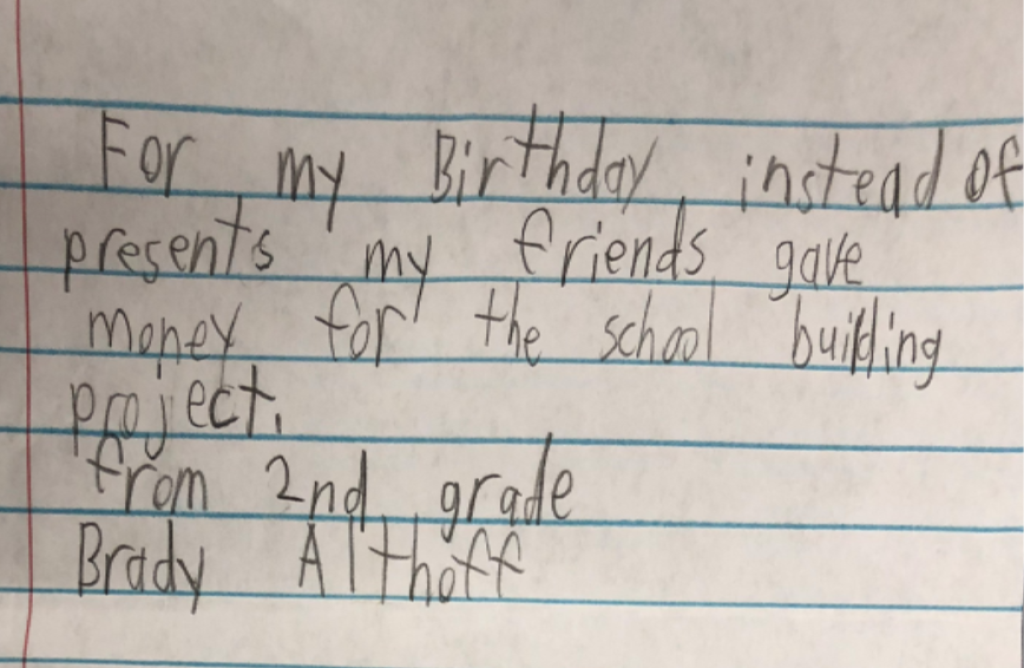 For my Birthday instead of
presents my friends gave
money for the school building
project.
from 2nd grade
Brady Althoff